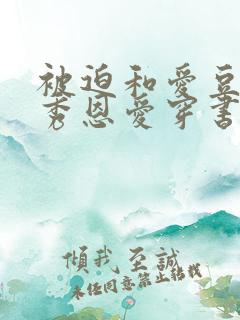 被迫和愛豆
秀恩愛穿書
傾我至誠
未经同意禁止转载